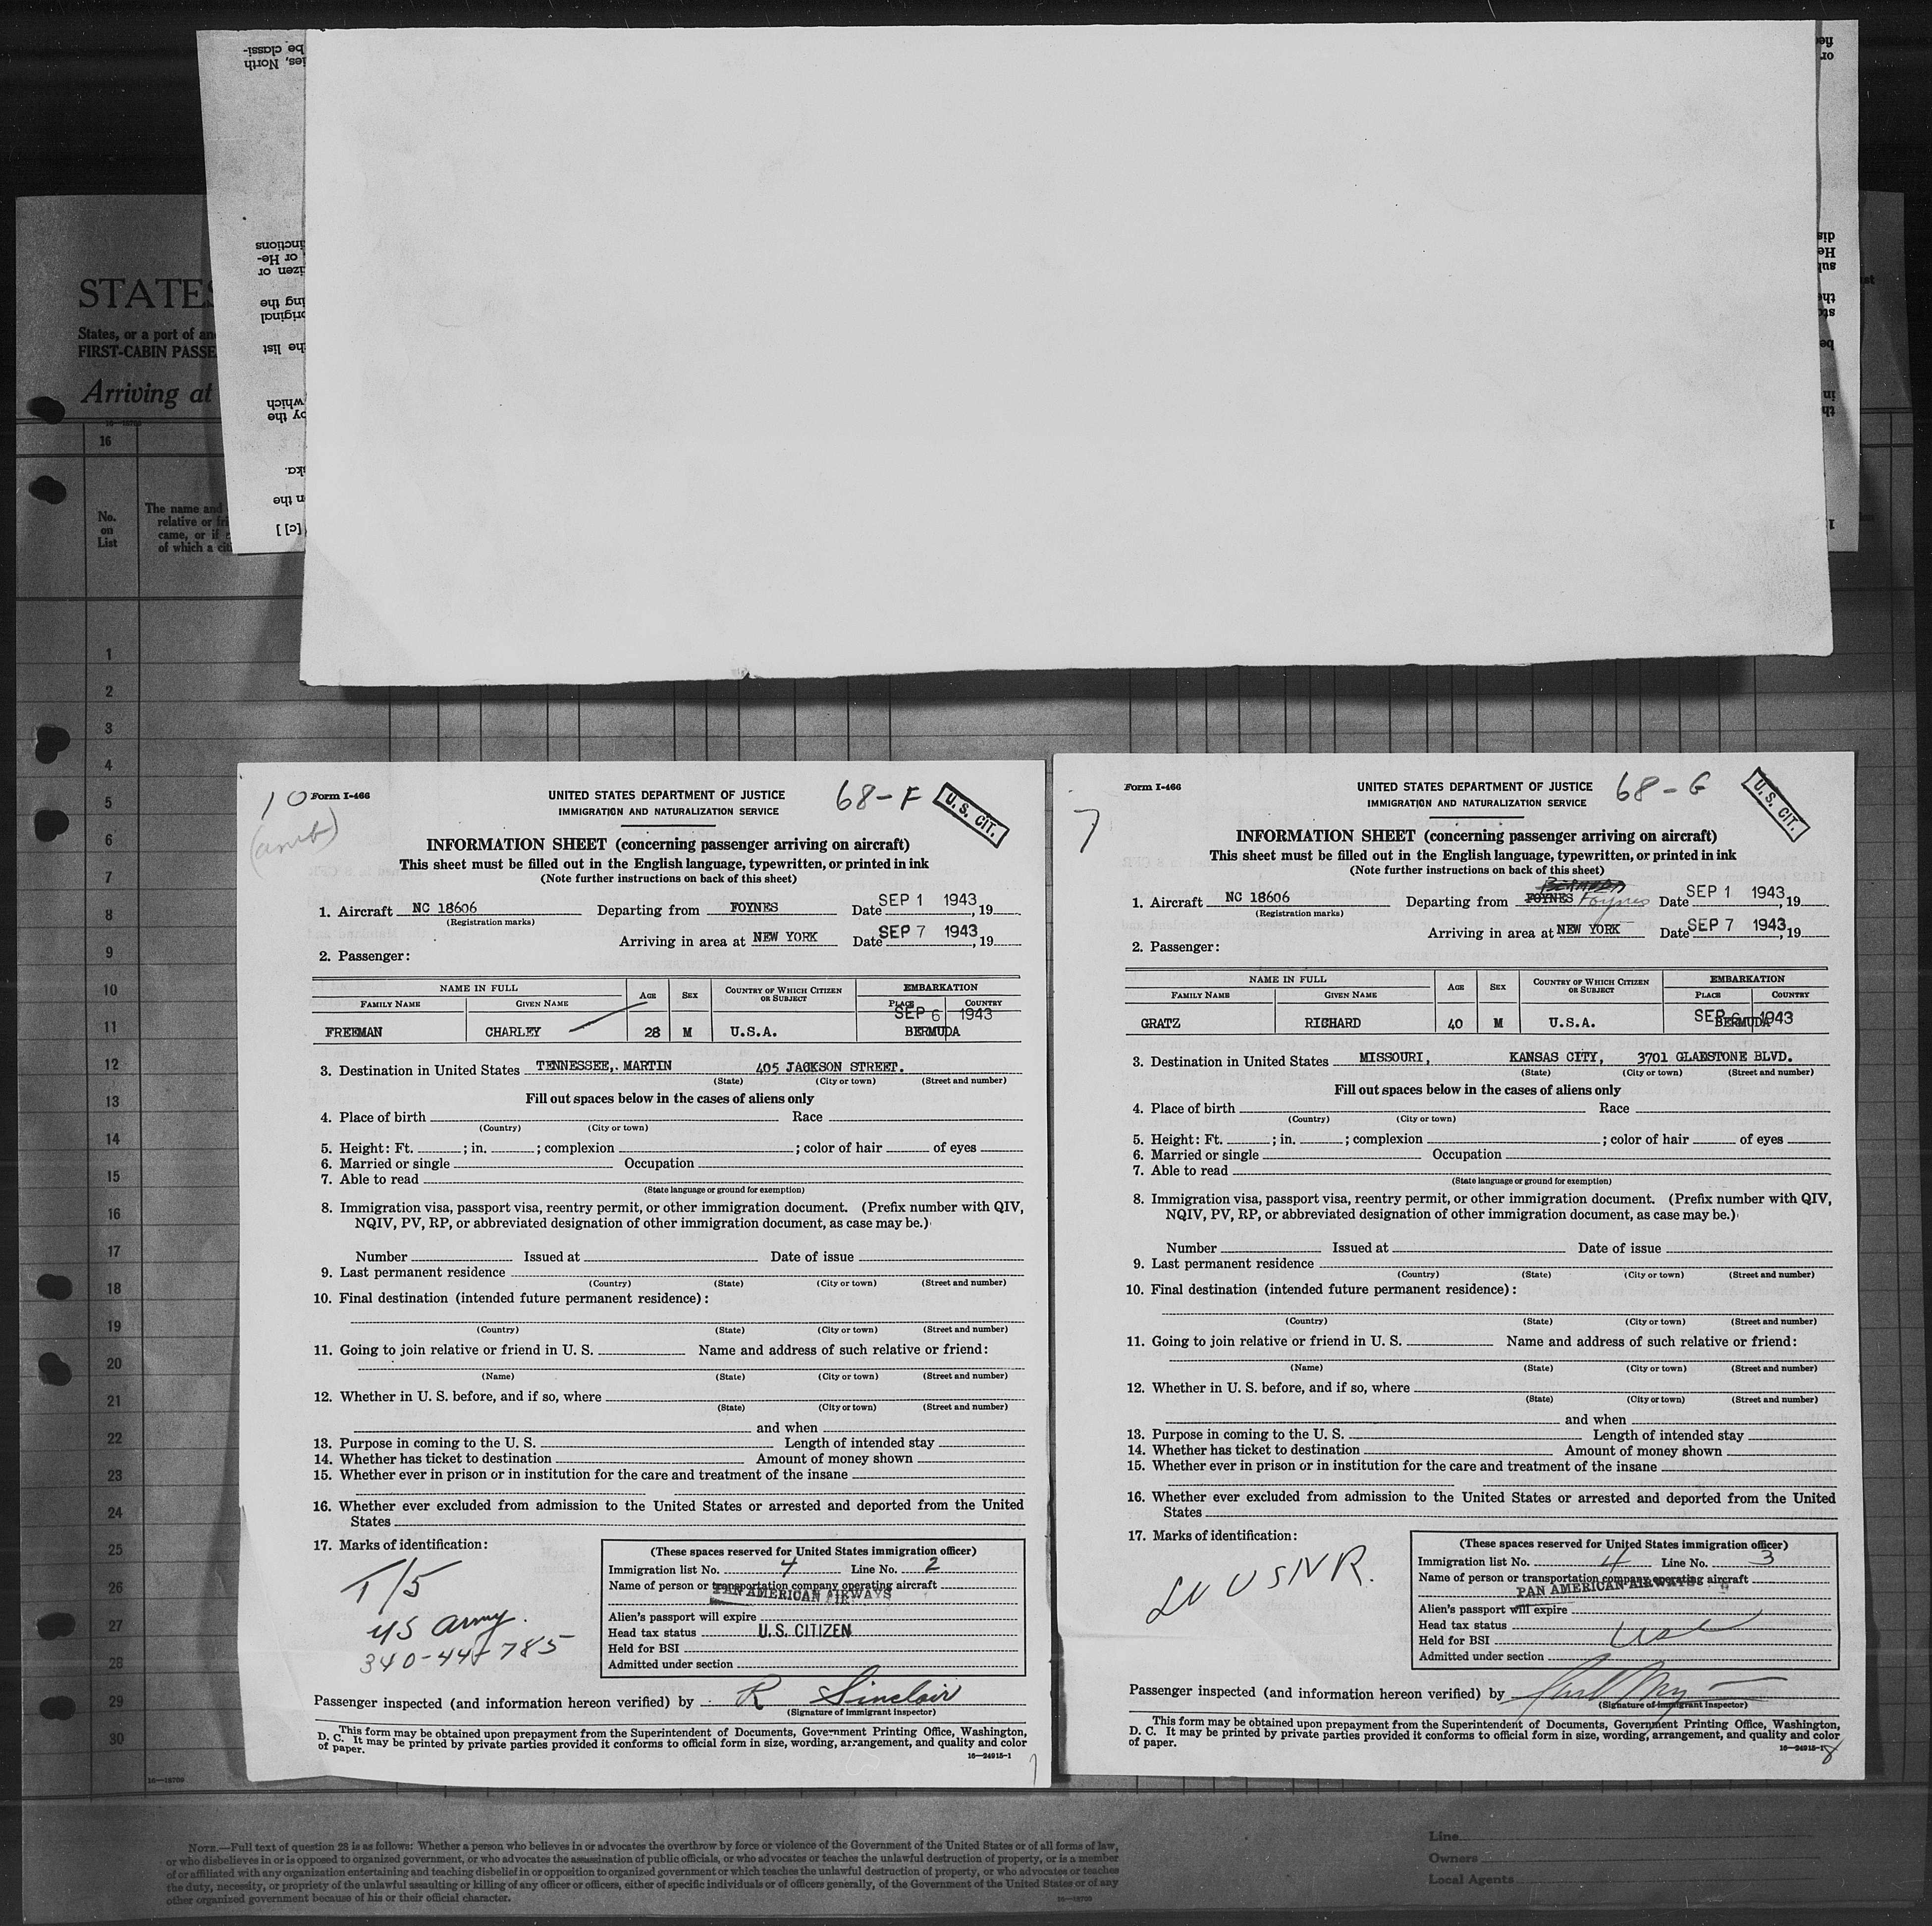 STATES
States, or a port of an
FIRST-CABIN PASSE
Arriving at
16
No.
on
List
The name and
relative or fri
came, or if
of which a cit
be classi-
ies, North
or He-
izen or
ing the
original
he list
which
by the
ska.
n the
[c] ]
1
2
3
4
5
6
7
8
9
10
11
12
13
14
15
16
17
18
19
20
21
22
23
24
25
26
27
28
29
30
16—18709
10 Form I-466
UNITED STATES DEPARTMENT OF JUSTICE
68-F
U. S. CIT.
IMMIGRATION AND NATURALIZATION SERVICE
INFORMATION SHEET (concerning passenger arriving on aircraft)
This sheet must be filled out in the English language, typewritten, or printed in ink
(Note further instructions on back of this sheet)
1. Aircraft NC 18606 Departing from FOYNES Date SEP 1 1943, 19
(Registration marks)
Arriving in area at NEW YORK Date SEP 7 1943, 19
2. Passenger:
NAME IN FULL AGE SEX COUNTRY OF WHICH CITIZEN OR SUBJECT EMBARKATION
FAMILY NAME GIVEN NAME PLACE COUNTRY
SEP 6 1943
FREEMAN CHARLEY 28 M U.S.A. BERMUDA
3. Destination in United States TENNESSEE,. MARTIN 405 JACKSON STREET.
(State) (City or town) (Street and number)
Fill out spaces below in the cases of aliens only
4. Place of birth Race
(Country) (City or town)
5. Height: Ft. ; in. ; complexion ; color of hair of eyes
6. Married or single Occupation
7. Able to read
(State language or ground for exemption)
8. Immigration visa, passport visa, reentry permit, or other immigration document. (Prefix number with QIV,
NQIV, PV, RP, or abbreviated designation of other immigration document, as case may be.)
Number Issued at Date of issue
9. Last permanent residence
(Country) (State) (City or town) (Street and number)
10. Final destination (intended future permanent residence):
(Country) (State) (City or town) (Street and number)
11. Going to join relative or friend in U. S. Name and address of such relative or friend:
(Name) (State) (City or town) (Street and number)
12. Whether in U. S. before, and if so, where
(State) (City or town) (Street and number)
and when
13. Purpose in coming to the U. S. Length of intended stay
14. Whether has ticket to destination Amount of money shown
15. Whether ever in prison or in institution for the care and treatment of the insane
16. Whether ever excluded from admission to the United States or arrested and deported from the United
States
17. Marks of identification:
T/5
US Army.
(These spaces reserved for United States immigration officer)
Immigration list No. 4 Line No. 2
Name of person or transportation company operating aircraft
PAN AMERICAN AIRWAYS
Alien's passport will expire
Head tax status U. S. CITIZEN
Held for BSI
Admitted under section
Passenger inspected (and information hereon verified) by R Sinclair
(Signature of immigrant inspector)
This form may be obtained upon prepayment from the Superintendent of Documents, Government Printing Office, Washington,
D. C. It may be printed by private parties provided it conforms to official form in size, wording, arrangement, and quality and color
of paper.
16—24915-1
7
Form I-466
UNITED STATES DEPARTMENT OF JUSTICE
68-G
U. S. CIT.
IMMIGRATION AND NATURALIZATION SERVICE
INFORMATION SHEET (concerning passenger arriving on aircraft)
This sheet must be filled out in the English language, typewritten, or printed in ink
(Note further instructions on back of this sheet)
BERMUDA
1. Aircraft NC 18606 Departing from FOYNES Foynes Date SEP 1 1943, 19
(Registration marks)
Arriving in area at NEW YORK Date SEP 7 1943, 19
2. Passenger:
NAME IN FULL AGE SEX COUNTRY OF WHICH CITIZEN OR SUBJECT EMBARKATION
FAMILY NAME GIVEN NAME PLACE COUNTRY
SEP 6 1943
GRATZ RICHARD 40 M U.S.A. BERMUDA
3. Destination in United States MISSOURI, KANSAS CITY, 3701 GLADSTONE BLVD.
(State) (City or town) (Street and number)
Fill out spaces below in the cases of aliens only
4. Place of birth Race
(Country) (City or town)
5. Height: Ft. ; in. ; complexion ; color of hair of eyes
6. Married or single Occupation
7. Able to read
(State language or ground for exemption)
8. Immigration visa, passport visa, reentry permit, or other immigration document. (Prefix number with QIV,
NQIV, PV, RP, or abbreviated designation of other immigration document, as case may be.)
Number Issued at Date of issue
9. Last permanent residence
(Country) (State) (City or town) (Street and number)
10. Final destination (intended future permanent residence):
(Country) (State) (City or town) (Street and number)
11. Going to join relative or friend in U. S. Name and address of such relative or friend:
(Name) (State) (City or town) (Street and number)
12. Whether in U. S. before, and if so, where
(State) (City or town) (Street and number)
and when
13. Purpose in coming to the U. S. Length of intended stay
14. Whether has ticket to destination Amount of money shown
15. Whether ever in prison or in institution for the care and treatment of the insane
16. Whether ever excluded from admission to the United States or arrested and deported from the United
States
17. Marks of identification:
USNR.
(These spaces reserved for United States immigration officer)
Immigration list No. 4 Line No. 3
Name of person or transportation company operating aircraft
PAN AMERICAN AIRWAYS
Alien's passport will expire
Head tax status
Held for BSI
Admitted under section
Passenger inspected (and information hereon verified) by
(Signature of immigrant inspector)
This form may be obtained upon prepayment from the Superintendent of Documents, Government Printing Office, Washington,
D. C. It may be printed by private parties provided it conforms to official form in size, wording, arrangement, and quality and color
of paper.
16—24915-1
8
NOTE.—Full text of question 28 is as follows: Whether a person who believes in or advocates the overthrow by force or violence of the Government of the United States or of all forms of law,
or who disbelieves in or is opposed to organized government, or who advocates the assassination of public officials, or who advocates or teaches the unlawful destruction of property, or is a member
of or affiliated with any organization entertaining and teaching disbelief in or opposition to organized government or which teaches the unlawful destruction of property, or who advocates or teaches
the duty, necessity, or propriety of the unlawful assaulting or killing of any officer or officers, either of specific individuals or of officers generally, of the Government of the United States or of any
other organized government because of his or their official character.
16—18709
Line
Owners
Local Agents